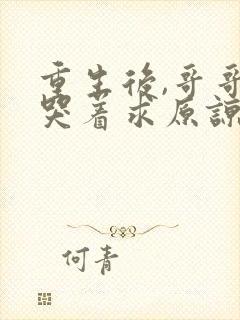 重生後,哥哥
哭着求原諒
何青